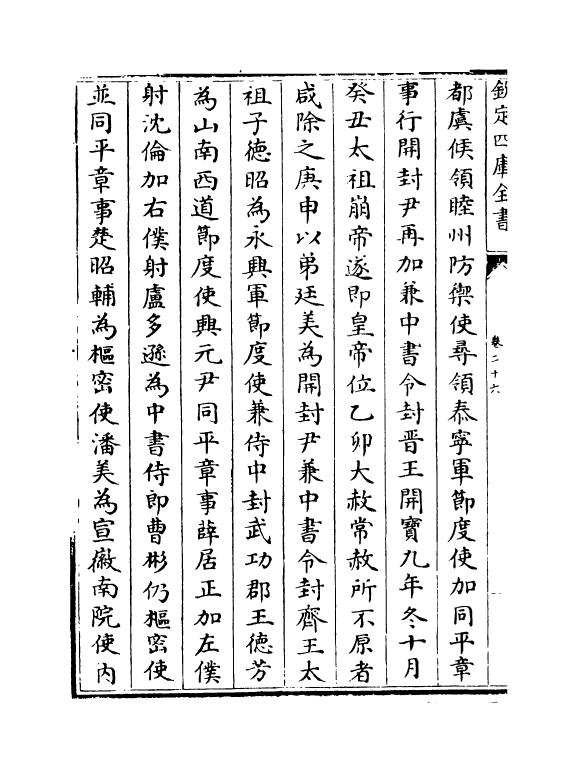 欽定四庫全書
卷二十六
都虞候領睦州防禦使尋領泰寧軍節度使加同平章
事行開封尹再加兼中書令封晋王開寶九年冬十月
癸丑太祖崩帝遂即皇帝位乙卯大赦常赦所不原者
咸除之庚申以弟廷美為開封尹兼中書令封齊王太
祖子德昭為永興軍節度使兼侍中封武功郡王德芳
為山南西道節度使興元尹同平章事薛居正加左僕
射沈倫加右僕射盧多遜為中書侍郎曹彬仍樞密使
並同平章事楚昭輔為樞密使潘美為宣徽南院使内